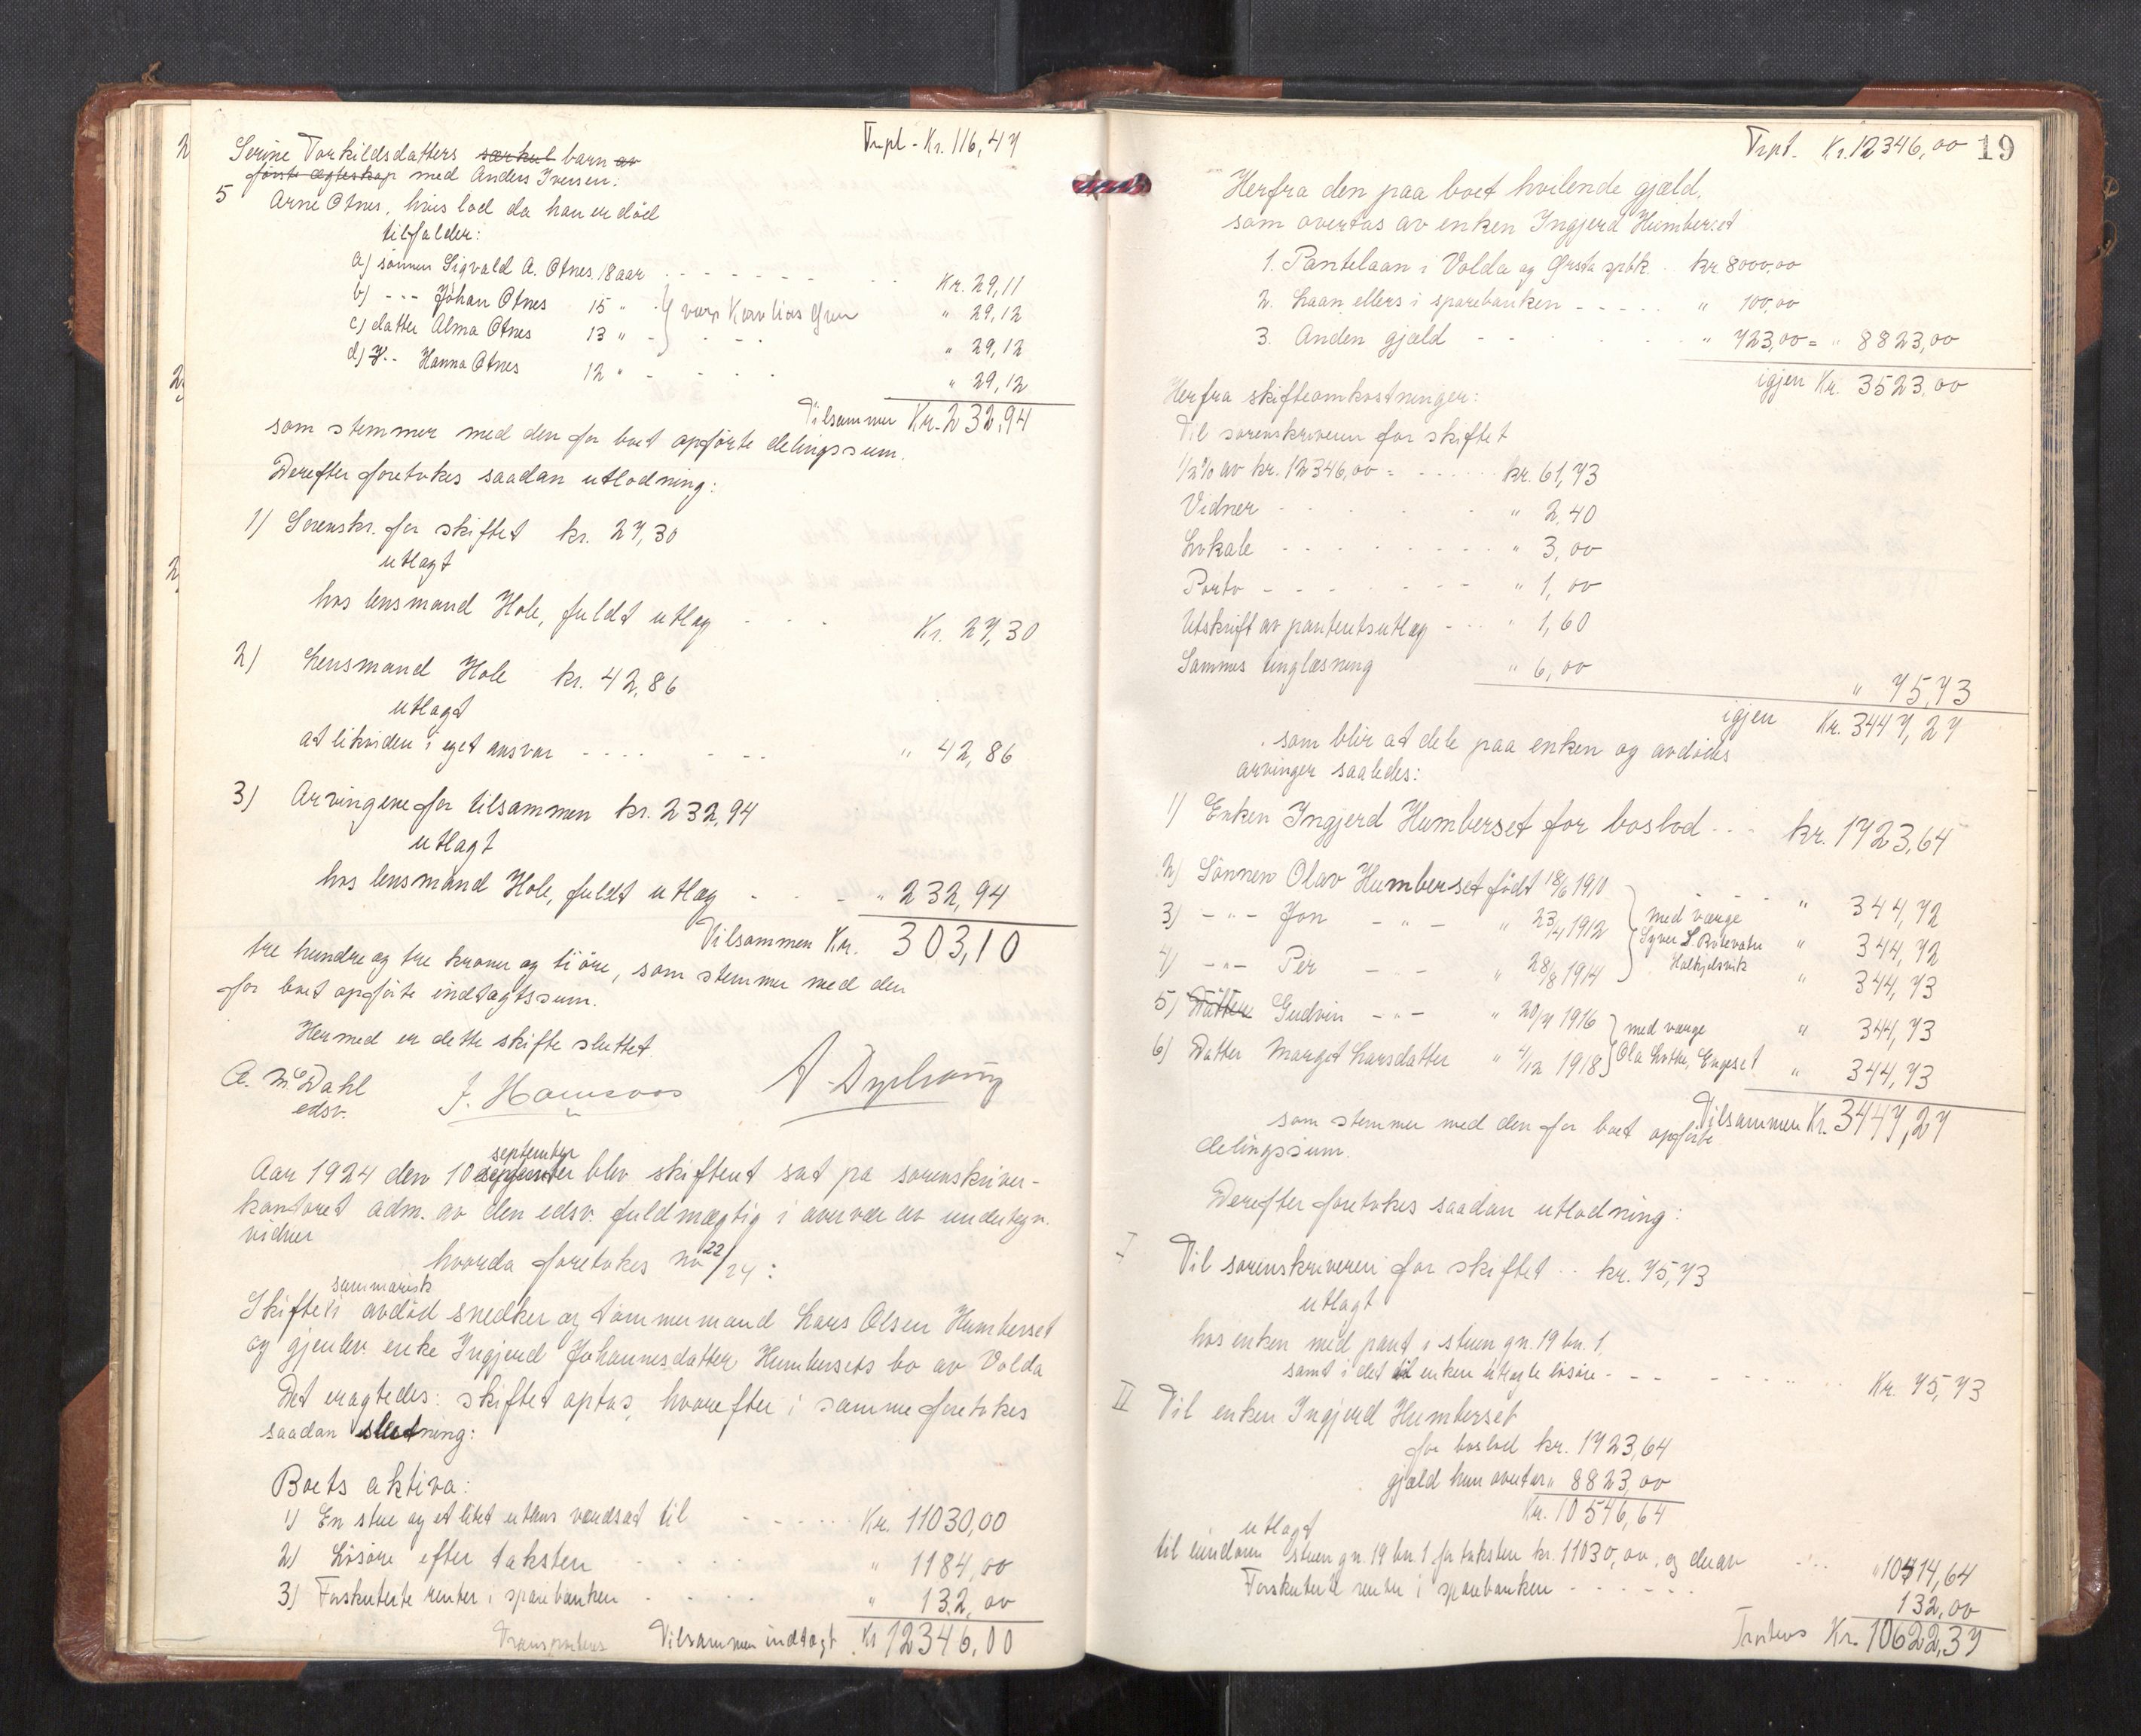 Trpt. Kr. 116,47
Serine Torkildsdatters særkul barn av
første egteskap med Anders Iversen:
5 Arne Otnes, hvis lod da han er död
tilfalder:
a) sønnen Sigvald A. Otnes 18 aar - - - - Kr. 29,11
b) - - - Johan Otnes 15 " " 29,12
c) datter Alma Otnes 13 " " 29,12
d) - - Hanna Otnes 12 " " 29,12
Tilsammen Kr. 232,94
som stemmer med den for boet opførte delingssum.
Derefter foretokes saadan utlodning:
1) Sorenskr. for skiftet kr. 27,30
utlagt
hos lensmand Hole, fuldt utlæg - - - Kr. 27,30
2) Lensmand Hole kr. 42,86
utlagt
at likviden i eget ansvar - - - - " 42,86
3) Arvingene for tilsammen kr. 232,94
utlagt
hos lensmand Hole, fuldt utlæg - - - " 232,94
Tilsammen Kr. 303,10
tre hundre og tre kroner og ti öre, som stemmer med den
for boet opførte indtægtssum.
Hermed er dette skifte sluttet.
A. M. Dahl
edsv.
september
Aar 1924 den 10 blev skifteret sat pa sorenskriver-
kontoret adm. av den edsv. fuldmægtig i overvær av undertegn.
vidner
hvorda foretokes no 22/24:
summarisk
Skifte i avdöd snedker og tømmermand Lars Olsen Humberset
og gjenlev. enke Ingjerd Johannesdatter Humbersets bo av Volda
Det eragtedes: skiftet optas, hvorefter i samme foretokes
saadan slutning:
Boets aktiva:
1) En stue og et litet uthus værdsat til - - - Kr. 11030,00
2) Lösöre efter taksten " 1184,00
3) Forskuterte renter i sparebanken " 132,00
Transporteres Tilsammen indtægt Kr 12346,00
Trpt. Kr. 12346,00 19
Herfra den paa boet hvilende gjæld,
som overtas av enken Ingjerd Humberset
1. Pantelaan i Volda og Ørsta spbk. kr 8000,00
2. Laan ellers i sparebanken - - - - - " 100,00
3. Anden gjæld - - - - " 723,00 = " 8823,00
igjen Kr. 3523,00
Herfra skifteomkostninger:
Til sorenskriveren for skiftet
1/2% av kr. 12346,00 = - - - - kr. 61,73
Vidner - - - - " 2,40
Lokale - - - - " 3,00
Porto - - - - " 1,00
Utskrift av panteutsutlæg - - " 1,60
Sammes tinglæsning " 6,00
" 75,73
igjen Kr. 3447,27
som blir at dele paa enken og avdødes
arvinger saaledes:
1) Enken Ingjerd Humberset for boslod - - - kr. 1723,64
2) Sönnen Olav Humberset född 18/6 1910 - - - " 344,72
3) - " - Jon - " - " 23/4 1912 med værge " 344,72
Syver S.
4) - " - Per - " - " 28/8 1914 " 344,73
5) Datter Gudvin - " - " 20/7 1916 med værge " 344,73
6) Datter Margit Larsdatter " 4/12 1918 Ola Engeset " 344,73
Tilsammen Kr. 3447,27
som stemmer med den for boet opførte
delingssum.
Derefter foretokes saadan utlodning:
I Til sorenskriveren for skiftet - - kr. 75,73
utlagt
hos enken med pant i stuen gn. 19 bn. 1.
samt i det til enken utlagte lösöre - - - - - Kr. 75,73
II Til enken Ingjerd Humberset
for boslod kr. 1723,64
gjæld hun overtar " 8823,00
Kr. 10546,64
utlagt
til eiendom stuen gn. 19 bn. 1 for taksten kr. 11030,00, og derav - - - " 10414,64
Forskuterte renter i sparebanken - - - - - 132,00
Kr. 10622,37